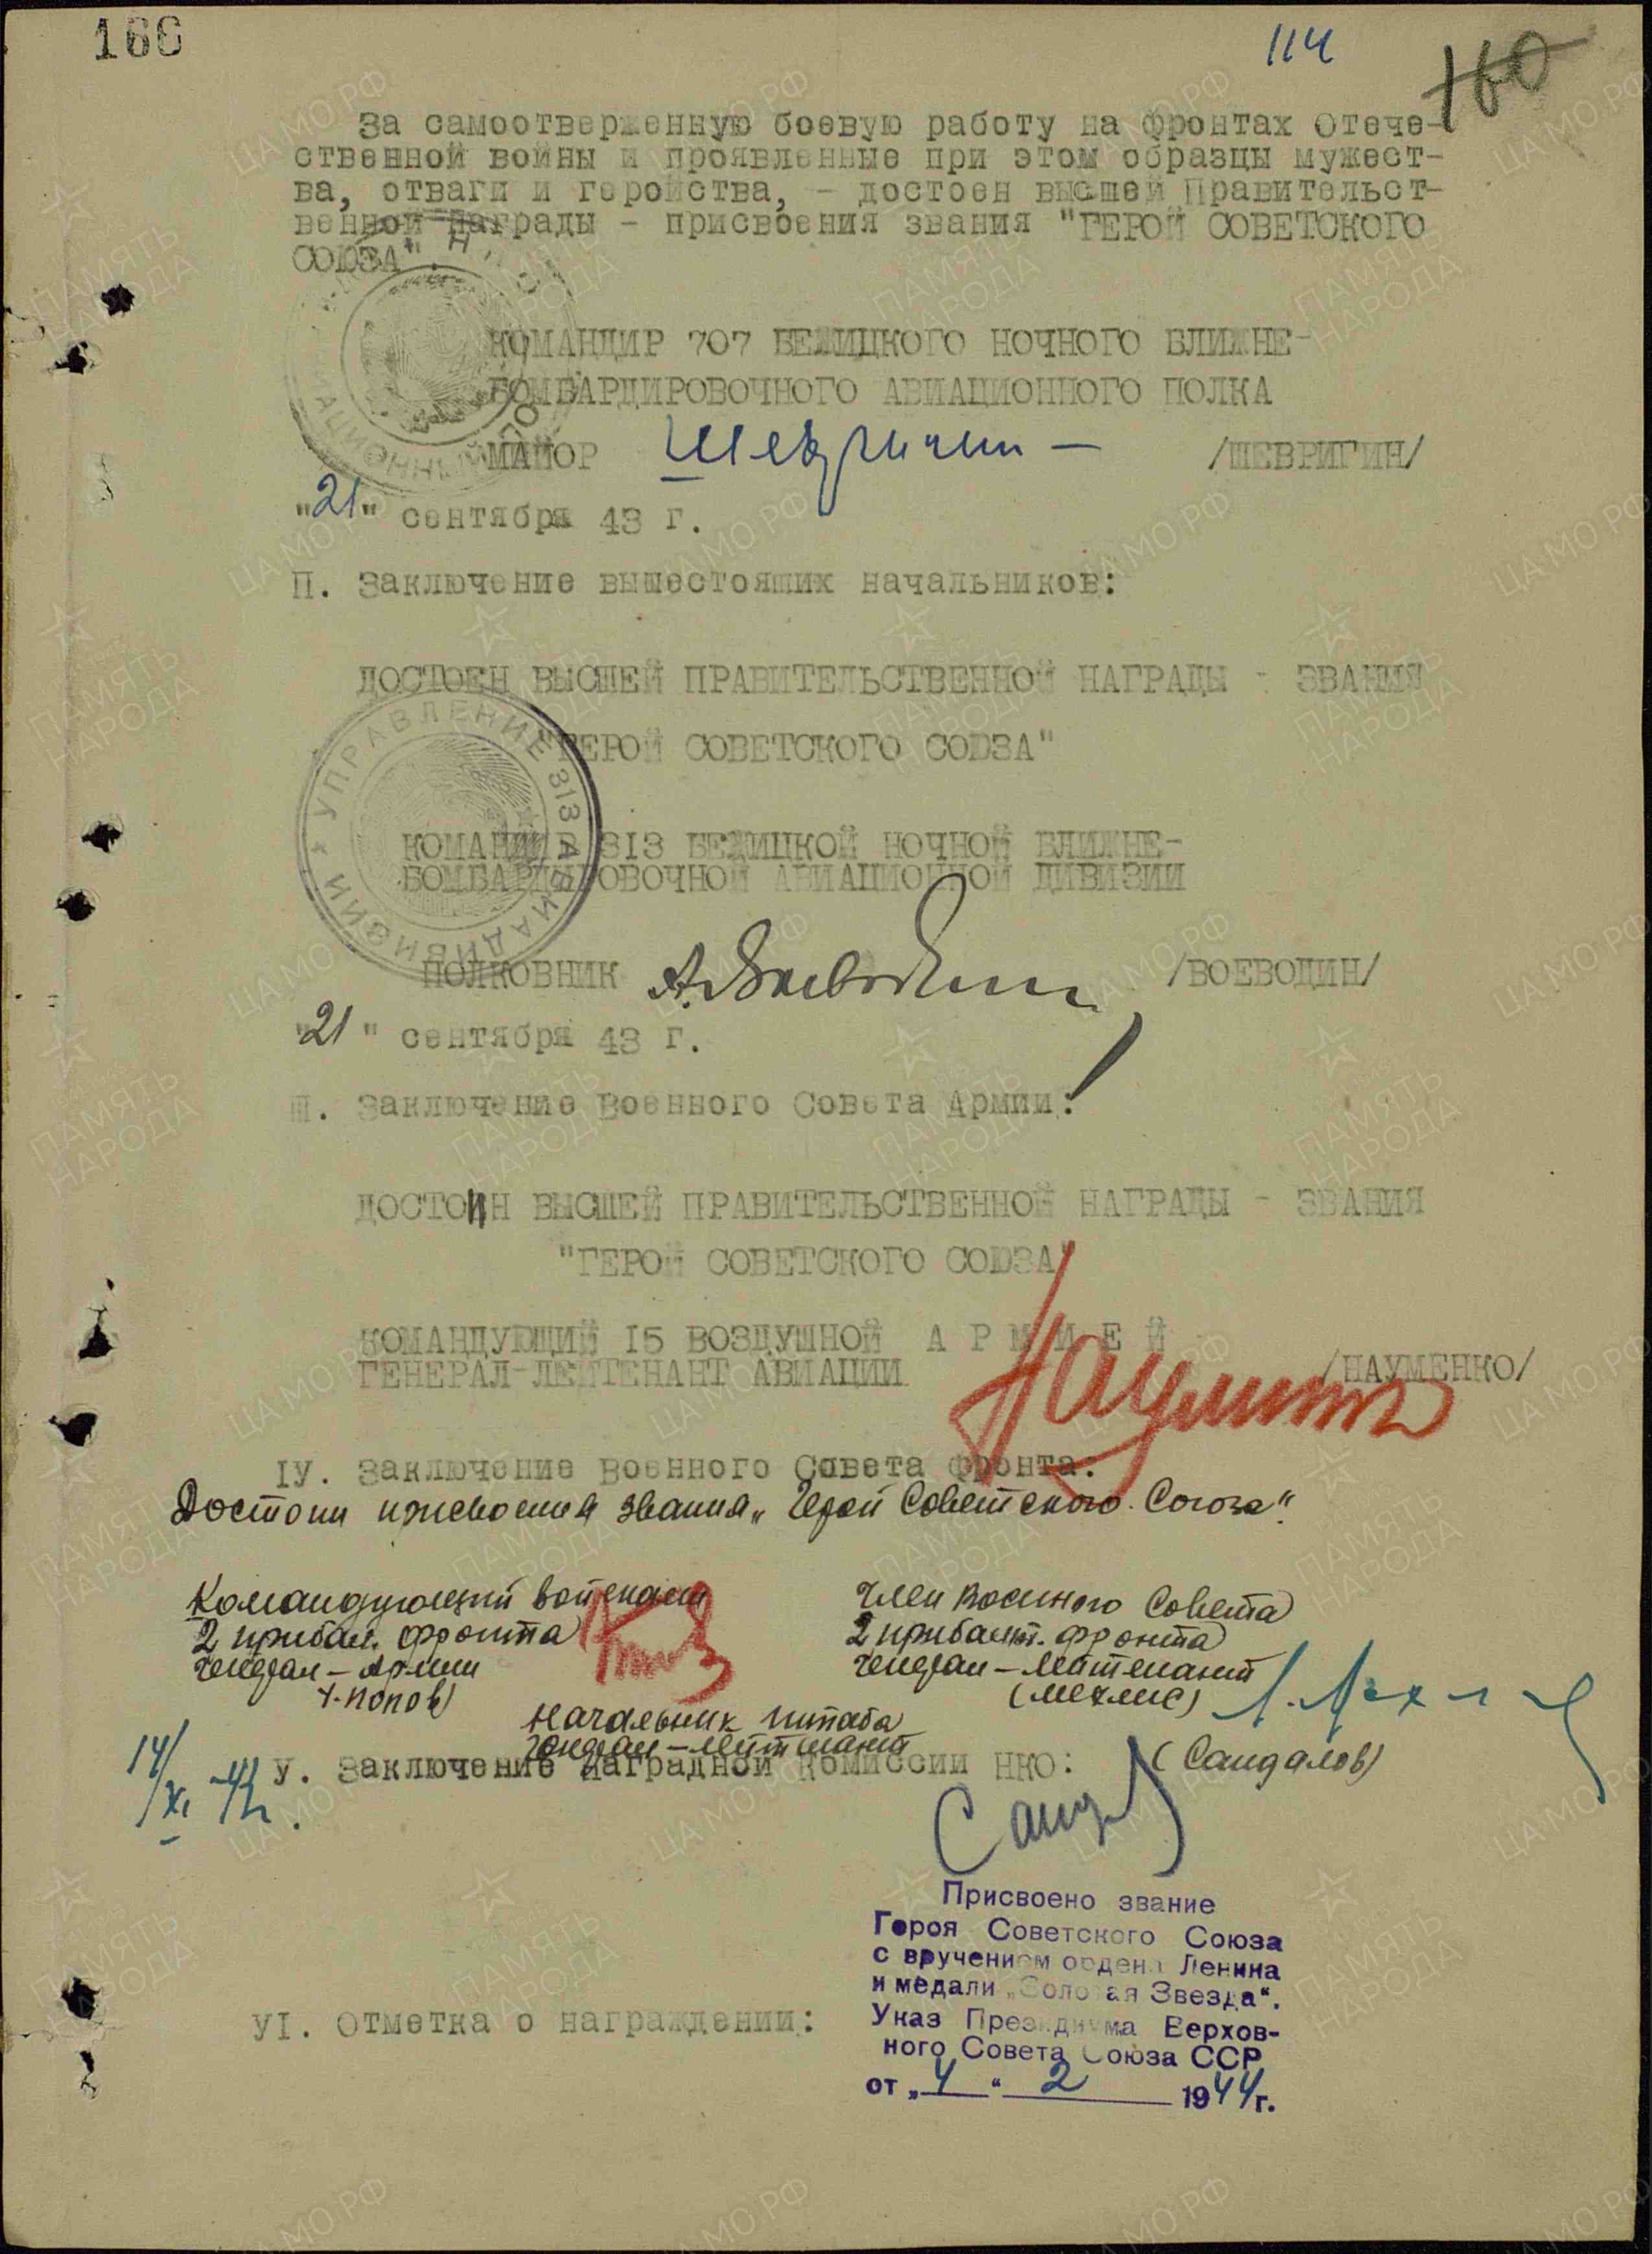 166
114
160
За самоотверженную боевую работу на фронтах Отече-
ственной войны и проявленные при этом образцы мужест-
ва, отваги и геройства, - достоен высшей Правительст-
венной награды - присвоения звания "ГЕРОЙ СОВЕТСКОГО
СОЮЗА".
КОМАНДИР 707 БЕЖИЦКОГО НОЧНОГО БЛИЖНЕ-
БОМБАРДИРОВОЧНОГО АВИАЦИОННОГО ПОЛКА
МАЙОР Шевригин /ШЕВРИГИН/
"21" сентября 43 г.
П. Заключение вышестоящих начальников:
ДОСТОЕН ВЫСШЕЙ ПРАВИТЕЛЬСТВЕННОЙ НАГРАДЫ - ЗВАНИЯ
"ГЕРОЙ СОВЕТСКОГО СОЮЗА"
УПРАВЛЕНИЕ 313 АВИАДИВИЗИИ
КОМАНДИР 313 БЕЖИЦКОЙ НОЧНОЙ БЛИЖНЕ-
БОМБАРДИРОВОЧНОЙ АВИАЦИОННОЙ ДИВИЗИИ
ПОЛКОВНИК А.Воеводин /ВОЕВОДИН/
"21" сентября 43 г.
Ш. Заключение Военного Совета Армии:
ДОСТОИН ВЫСШЕЙ ПРАВИТЕЛЬСТВЕННОЙ НАГРАДЫ - ЗВАНИЯ
"ГЕРОЙ СОВЕТСКОГО СОЮЗА"
КОМАНДУЮЩИЙ 15 ВОЗДУШНОЙ А Р М И Е Й
ГЕНЕРАЛ-ЛЕЙТЕНАНТ АВИАЦИИ Науменко /НАУМЕНКО/
IУ. Заключение Военного Совета фронта.
Достоин присвоения звания „Герой Советского Союза".
Командующий войсками
2 прибал. фронта
генерал-Армии
(Попов)
Член Военного Совета
2 прибалт. фронта
генерал-лейтенант
(Мехлис) Л. Мехлис
Начальник штаба
генерал-лейтенант
(Сандалов)
14/XI-43.
У. Заключение Наградной Комиссии НКО:
Санд
Присвоено звание
Героя Советского Союза
с вручением ордена Ленина
и медали „Золотая Звезда".
Указ Президиума Верхов-
ного Совета Союза ССР
от „4" 2 1944г.
УI. Отметка о награждении: